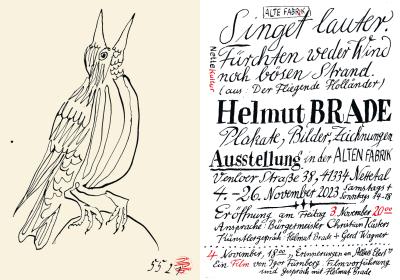 ALTE FABRIK
Singet lauter.
Fürchten weder Wind
noch bösen Strand.
(aus: Der Fliegende Holländer)
NetteKultur
Helmut BRADE
Plakate, Bilder, Zeichnungen
Ausstellung in der ALTEN FABRIK
Venloer Straße 38, 41334 Nettetal
4.–26. November 2023 Samstags +
Sonntags 14-18
Eröffnung am Freitag 3. November 20 00
Ansprache: Bürgermeister Christian Küsters
Künstlergespräch Helmut Brade + Gerd Wagner
4. November, 18 00 „Erinnerungen an
Ein Film von Igor Fürnberg. Filmvorführung
und Gespräch mit Helmut Brade